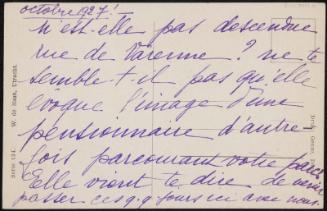 octobre 1927!
N'est-elle pas descendue
rue de Varenne? ne te
semble t-il pas qu'elle
évoque l'image d'une
pensionnaire d'autre-
fois parcourant votre parc?
Elle vient te dire de venir
passer q.q. jours ici avec nous.
W. de Haan, Utrecht.
Serie 124.